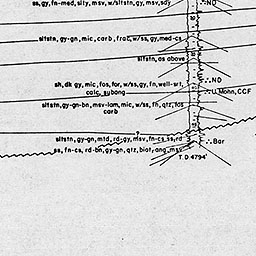 ss,gy,fn-med,slty,msv,w/sltstn,gy,msv,sdy
ND
sltstn,gy-gn,mic,carb,frac,w/ss,gy,med-cs
sltstn,as above
sh,dk gy,mic,fos,for,w/ss,gy,fn,well-srt,
calc,subang
ND
U.Mohn,CCF
sltstn,gy-gn-bn,msv-lam,mic,w/ss,fn,qtz,fos
carb
?
sltstn,gy-gn,mtd,rd-gy,msv,fn-cs,ss,rd
Bar
ss,fn-cs,rd-bn,gy-gn,qtz,biot,ang,msv
T.D.4794'